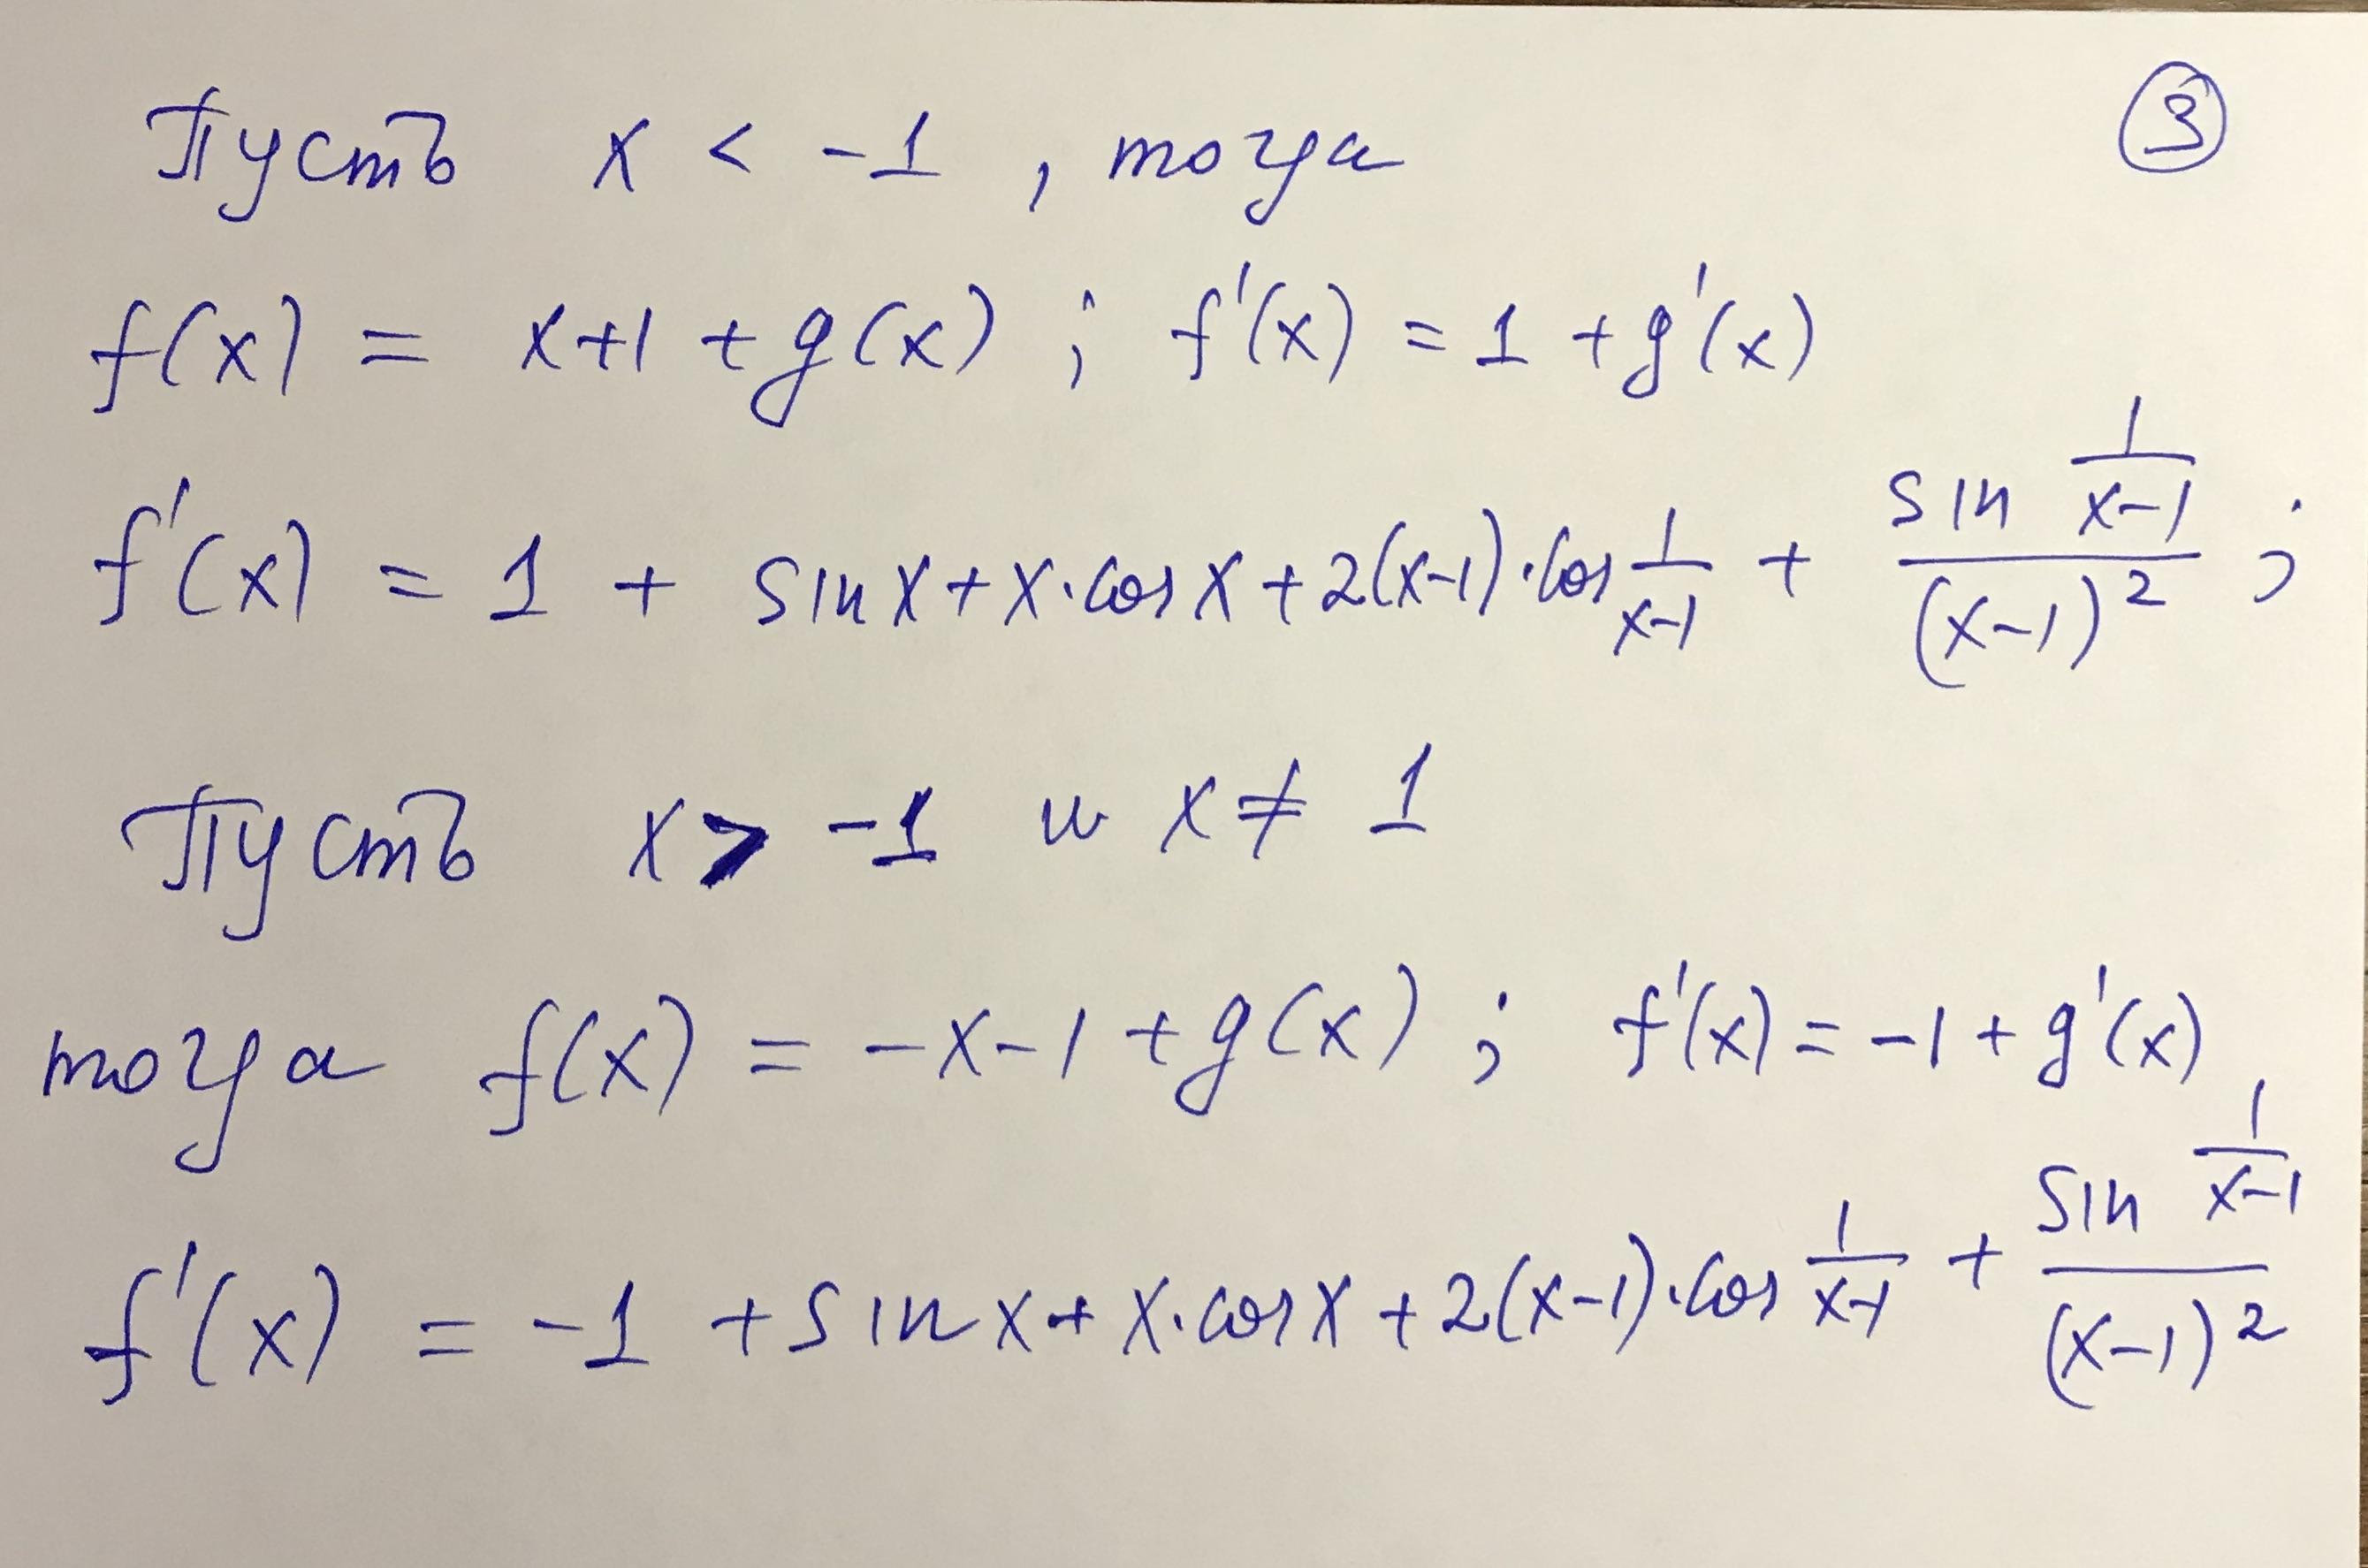 Пусть x < -1 , тогда ③
f(x) = x+1 + g(x) ; f'(x) = 1 + g'(x)
f'(x) = 1 + sin x + x·cos x + 2(x-1)·cos 1/(x-1) + (sin 1/(x-1))/(x-1)² ;
Пусть x > -1 и x ≠ 1
тогда f(x) = -x-1 + g(x) ; f'(x) = -1 + g'(x)
f'(x) = -1 + sin x + x·cos x + 2(x-1)·cos 1/(x-1) + (sin 1/(x-1))/(x-1)²